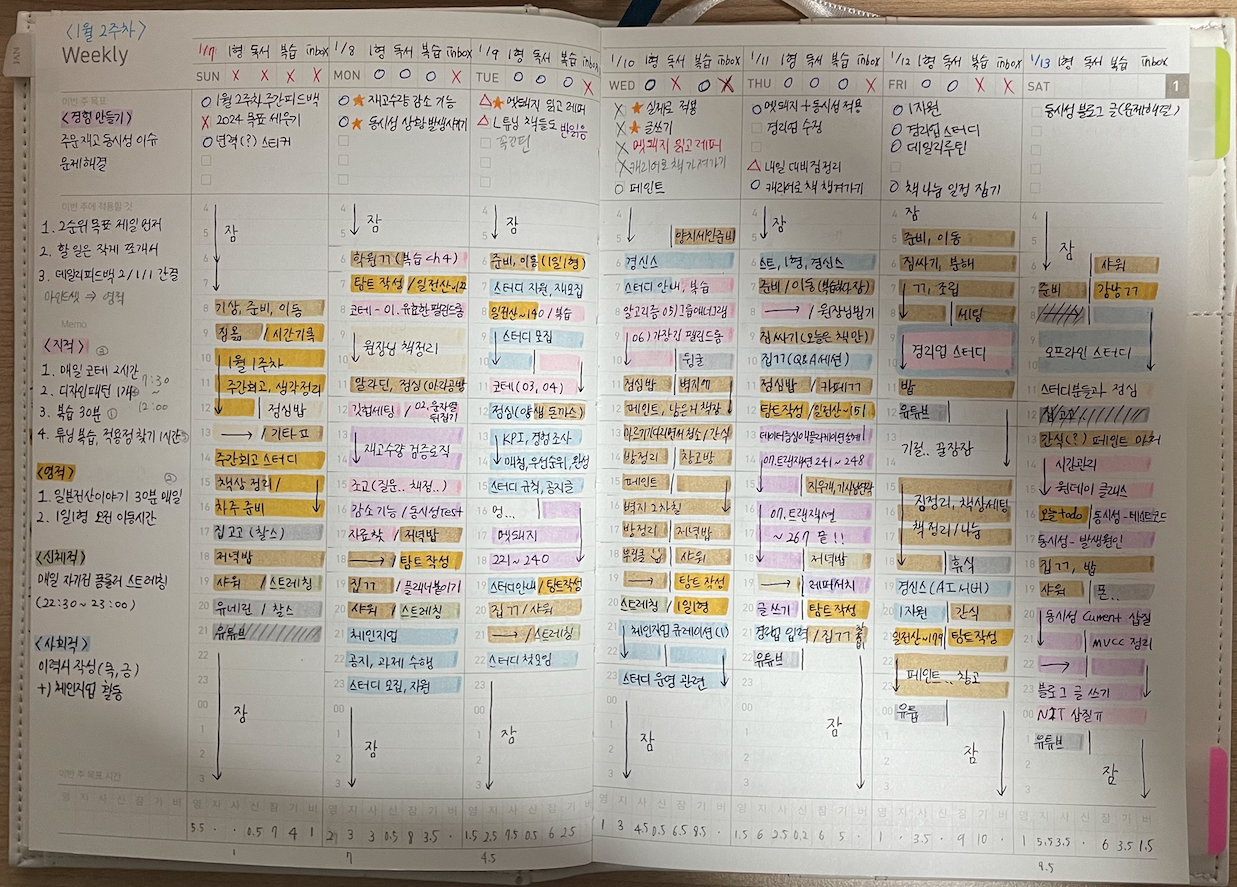 <1월 2주차>
Weekly
이번 주 목표
<경험 만들기>
주문 재고 동시성 이슈
문제해결
이번 주에 적용할 것
1. 2순위 목표 제일 먼저
2. 할 일은 작게 쪼개서
3. 데일리피드백 2/1/1 간결
마인드셋 ⇒ 영적
Memo
<지적> ③
1. 매일 코테 2시간
2. 디자인패턴 1개
7:30 ~ 12:00
3. 복습 30분 ①
4. 튜닝 복습, 적용점 찾기 1시간
<영적> ②
1. 일본전산이야기 30분 매일
2. 1일1형 오전 이동시간
<신체적>
매일 자기전 폼롤러 스트레칭
(22:30~23:00)
<사회적>
이력서 작성(목,금)
+) 체인지업 활동
이번 주 목표 시간
영 지 사 신 잠 기 버
1/7 1형 독서 복습 inbox
SUN X X X X
O 1월 2주차 주간피드백
X 2024 목표 세우기
O 면역(?) 스티커
잠
기상, 준비, 이동
짐옮 / 시간기록
1월 1주차
주간회고, 생각정리
점심밥
→ / 기타 ㅍ
주간회고 스터디
책상 정리 /
차주 준비
집고고 (찰스)
저녁밥
샤워 / 스트레칭
유네린 / 찰스
유튜브
잠
영 지 사 신 잠 기 버
5.5 · · 0.5 7 4 1
1
1/8 1형 독서 복습 inbox
MON O O O X
O ★ 재고수량 감소 기능
O ★ 동시성 상황 발생시키기
잠
학원ㄲ (복습 ch4)
탐트 작성 / 일전산
코테 - 01. 유효한 팰린드롬
원장님 책정리
알라딘, 점심 (마라공방)
깃헙세팅 / 02. 문자열 뒤집기
재고수량 검증로직
조교 (질문.. 채점..)
감소 기능 / 동시성 Test
자료찾 / 저녁밥
→ 탐트작성
집ㄲ / 플래너붙이기
샤워 / 스트레칭
체인지업
공지, 과제 수행
스터디 모집, 자원
잠
영 지 사 신 잠 기 버
2 3 3 0.5 8 3.5 ·
7
1/9 1형 독서 복습 inbox
TUE O O O X
△ ★ 멧돼지 읽고 레퍼
△ L튜닝 책들도 반읽음
잠
준비, 이동 (1일1형)
스터디 지원, 재모집
일전산 ~140 / 복습
스터디 모집
코테 (03, 04)
점심 (양생 돈까스)
KPI, 경험 조사
매칭, 우선순위, 완성
스터디 규칙, 공지글
멍...
멧돼지
221 ~ 240
스터디안내 / 탐트작성
집ㄲ / 샤워
→ / 스트레칭
스터디 첫모임
잠
영 지 사 신 잠 기 버
1.5 2.5 7.5 0.5 6 2.5
4.5
1/10 1형 독서 복습 inbox
WED O X O X
X ★ 실제로 적용
X ★ 글쓰기
X 멧돼지 읽고 레퍼
X 캐리어로 책 가져가기
O 페인트
양치세안준비
경신스
스터디 안내, 복습
알고리즘 05) 그룹애너그램
06) 가장긴 팰린드롬
뒹굴
점심밥 벽지ㄲ
페인트, 나은거 책장
정리 창고방
페인트
벽지 2차칠
방정리 저녁밥
샤워
→ 탐트작성
스트레칭 / 1일1형
체인지업 큐레이션 (1)
스터디 운영 관련
잠
영 지 사 신 잠 기 버
1 3 4.5 0.5 6.5 8.5 ·
1/11 1형 독서 복습 inbox
THU O O O X
O 멧돼지 + 동시성 적용
경리업 수정
△ 내일 대비 점정리
O 캐리어로 책 챙겨가기
잠
스트, 1형, 경신스
준비 / 이동
→ / 원장님뵙기
짐싸기 (오늘은 책만)
집ㄲ (Q&A세션)
점심밥 / 카페ㄲ
탐트작성 / 일전산 ~151
데이터중심애플리케이션설계
07. 트랜잭션 241 ~ 248
07. 트랜잭션
~ 267 끝!!
저녁밥
→ / 레퍼서치
글 쓰기 탐트작성
경리업 입력 / 집ㄲ
유튜브
잠
영 지 사 신 잠 기 버
1.5 6 2.5 0.2 6 5 ·
1/12 1형 독서 복습 inbox
FRI O O X X
O 1지원
O 경리업 스터디
O 데일리루틴
O 책 나눔 일정 잡기
잠
준비, 이동
짐싸기, 북해
ㄲ, 조립
세팅
경리업 스터디
밥
유튜브
기절.. 꿀잠잠
짐정리, 책상세팅
책정리 / 나눔
휴식
경신스 (AI 서버)
1지원 간식
일전산 ~179 탐트작성
페인트.. 창고
유튭
잠
영 지 사 신 잠 기 버
1 · 3.5 · 9 10 ·
1/13 1형 독서 복습 inbox
SAT
1
동시성 블로그 글 (문제해결)
잠
샤워
준비 강남ㄲ
오프라인 스터디
스터디분들과 점심
집고고
간식(?) 페인트 마저
시간관리
원데이 클래스
오늘 todo 동시성 - 테스트코드
동시성 - 발생원인
집ㄲ, 밥
샤워 폰..
동시성 current 삽질
MVCC 정리
→
블로그 글 쓰기
삽질ㅠ
유튜브
잠
영 지 사 신 잠 기 버
1 5.5 3.5 · 6 3.5 1.5
9.5